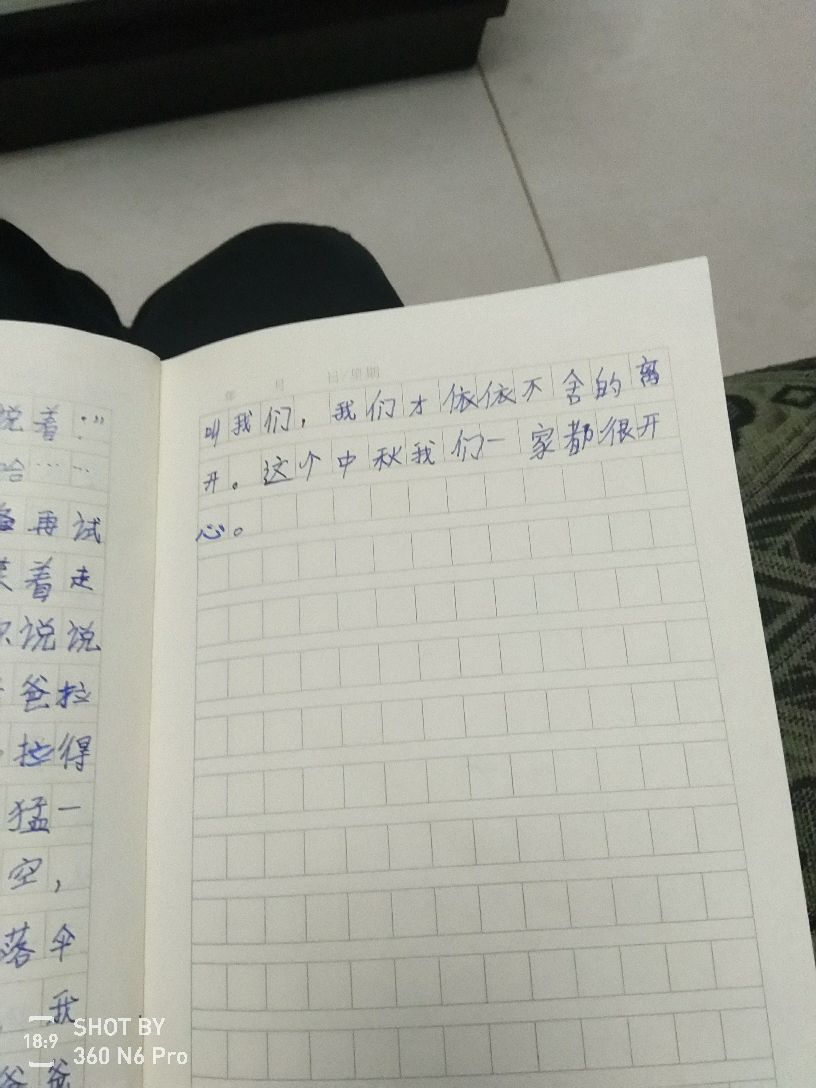 说着:”
哈……
再试
着走
说说
爸拉
拉得
猛一
空，
落伞
我
爸
年 月 日/星期
叫我们，我们才依依不舍的离
开。这个中秋我们一家都很开
心。
18:9
SHOT BY
360 N6 Pro